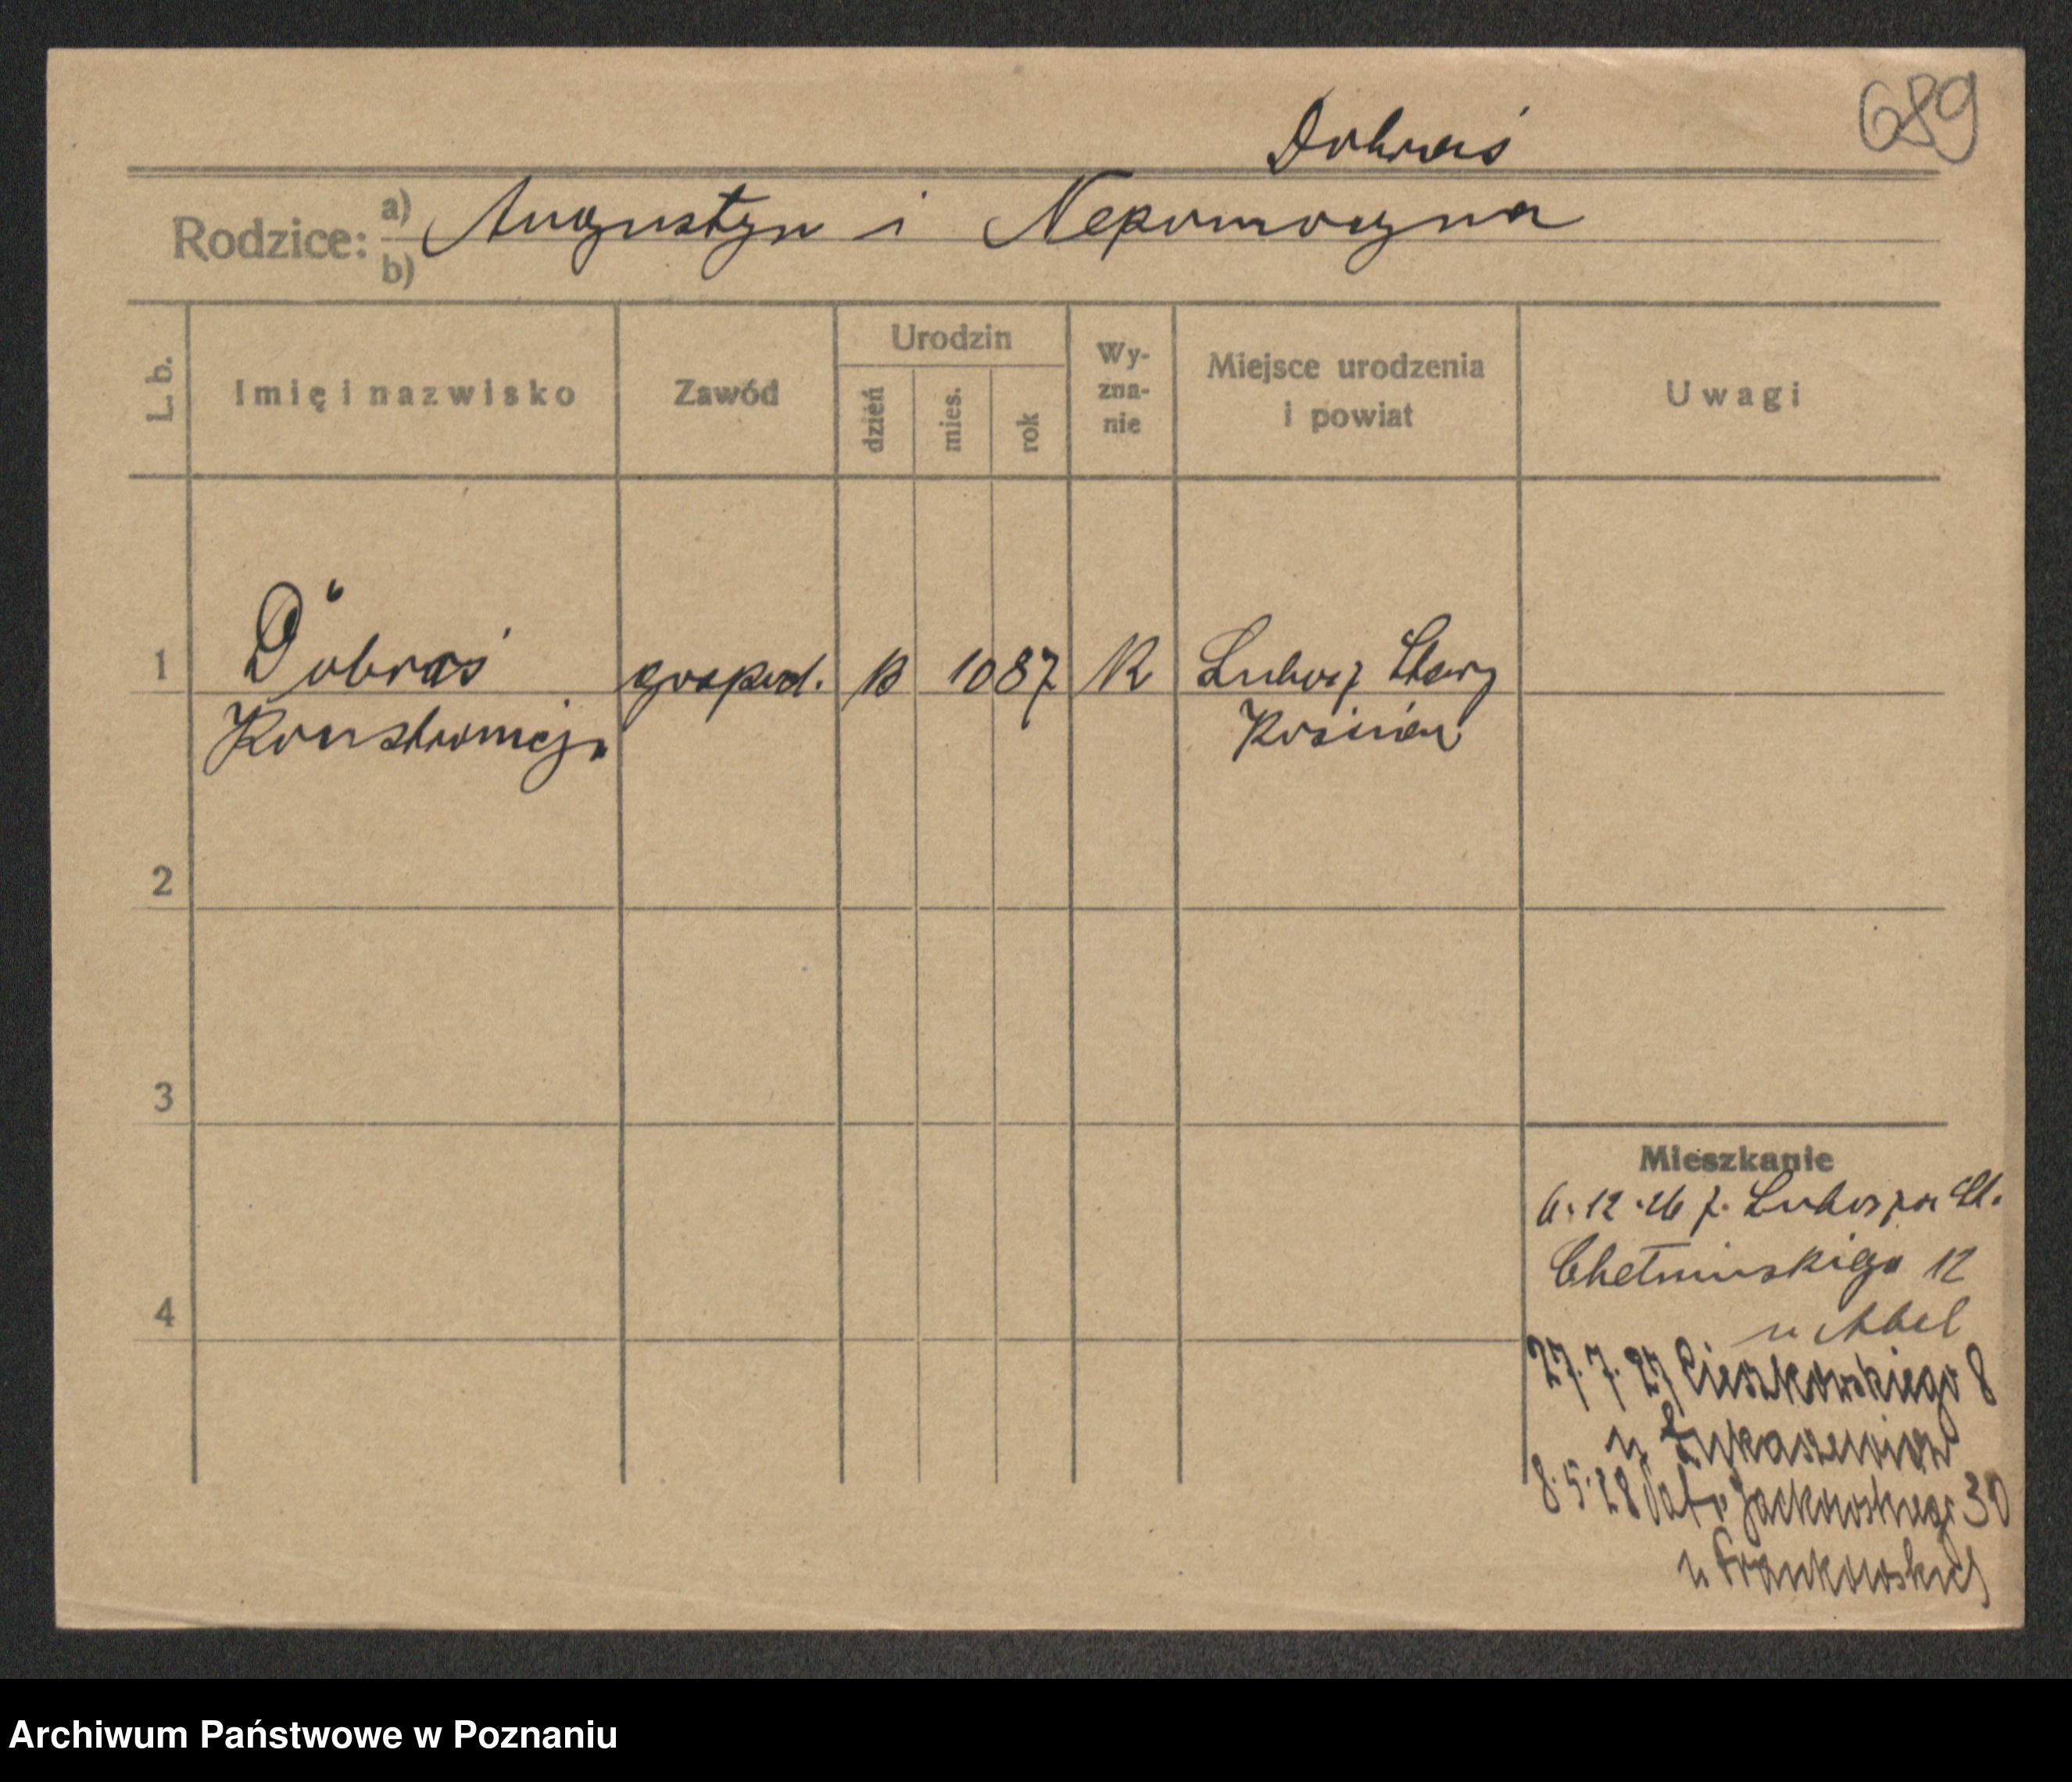 689
Dobraś
Rodzice: a) b) Augustyn i Nepomocyna
L. b.
Imię i nazwisko
Zawód
Urodzin
dzień
mies.
rok
Wy-
zna-
nie
Miejsce urodzenia
i powiat
Uwagi
1 Dobraś gospod. 10 87 K Lubosz Stary
Konstancja Kościan
2
3
4
Mieszkanie
6.12.26 z Lubosza St.
Chełmińskiego 12
u Abel
27.7.27 Cieszkowskiego 8
u Łukaszewicz
8.5.28 Jackowskiego 30
u Frankowskich
Archiwum Państwowe w Poznaniu